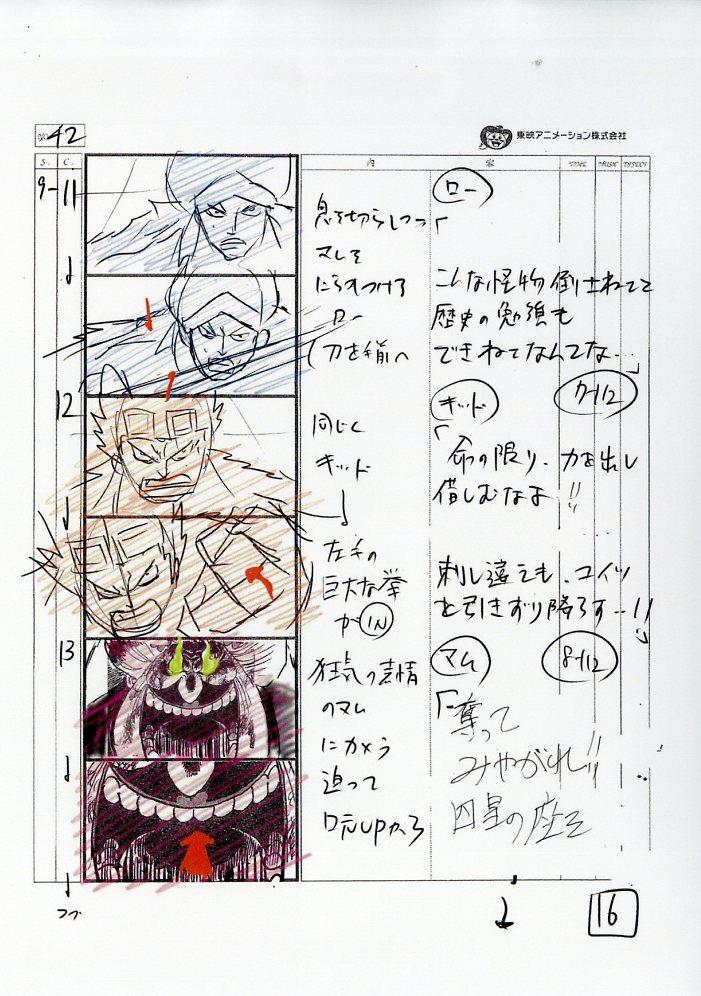 NO. 42
東映アニメーション株式会社
S. C. 内 容 TIME MUSIC EFFECT
9-11
息を切らしつつ
マムを
にらみつける
ロー
刀を手前へ
ロー
「こんな怪物倒さねェで
歴史の勉強も
できねェなんてな…」
7+12
12
同じく
キッド
左手の
巨大な拳
が IN
キッド
「命の限り、力を出し
惜しむなよ!!
刺し違えても、コイツ
を引きずり降ろす…!!」
8+12
13
狂気の表情
のマム
にカメラ
迫って
口元UPから
マム
「奪って
みやがれ!!
四皇の座を
つづ
16